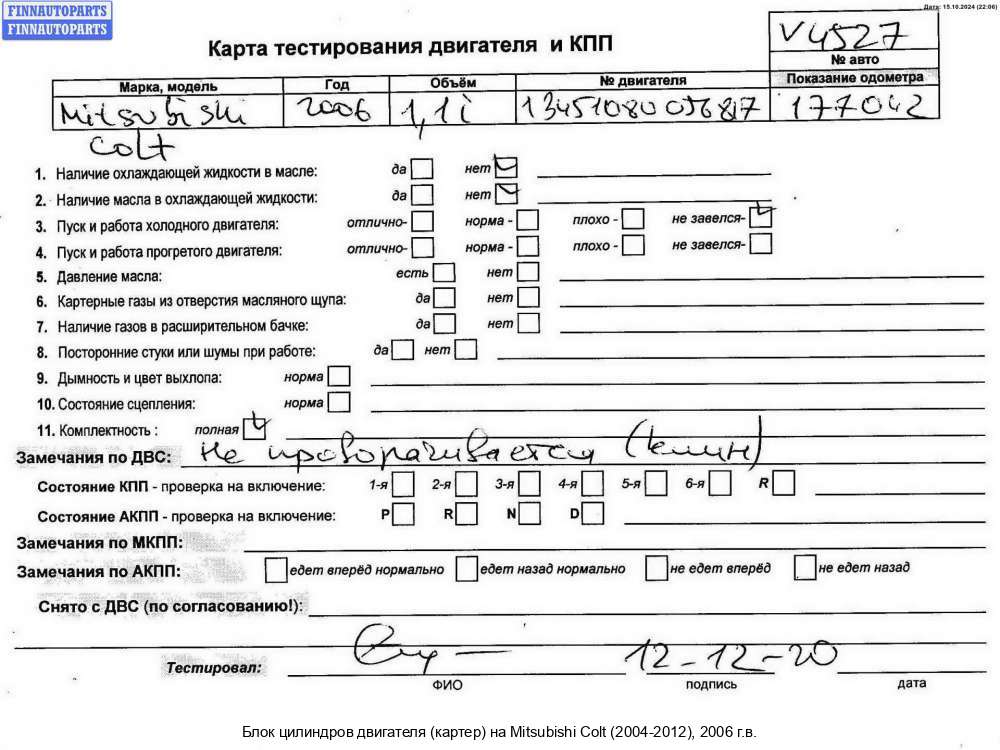 FINNAUTOPARTS
FINNAUTOPARTS
Дата: 15.10.2024 (22:06)
Карта тестирования двигателя и КПП
V4527
№ авто
Марка, модель Год Объём № двигателя Показание одометра
Mitsubishi 2006 1,1i 177042
Colt
1. Наличие охлаждающей жидкости в масле: да нет
2. Наличие масла в охлаждающей жидкости: да нет
3. Пуск и работа холодного двигателя: отлично- норма - плохо - не завелся-
4. Пуск и работа прогретого двигателя: отлично- норма - плохо - не завелся-
5. Давление масла: есть нет
6. Картерные газы из отверстия масляного щупа: да нет
7. Наличие газов в расширительном бачке: да нет
8. Посторонние стуки или шумы при работе: да нет
9. Дымность и цвет выхлопа: норма
10. Состояние сцепления: норма
11. Комплектность : полная
Замечания по ДВС: Не проворачивается (клин)
Состояние КПП - проверка на включение: 1-я 2-я 3-я 4-я 5-я 6-я R
Состояние АКПП - проверка на включение: P R N D
Замечания по МКПП:
Замечания по АКПП: едет вперёд нормально едет назад нормально не едет вперёд не едет назад
Снято с ДВС (по согласованию!):
Тестировал: 12-12-20
ФИО подпись дата
Блок цилиндров двигателя (картер) на Mitsubishi Colt (2004-2012), 2006 г.в.